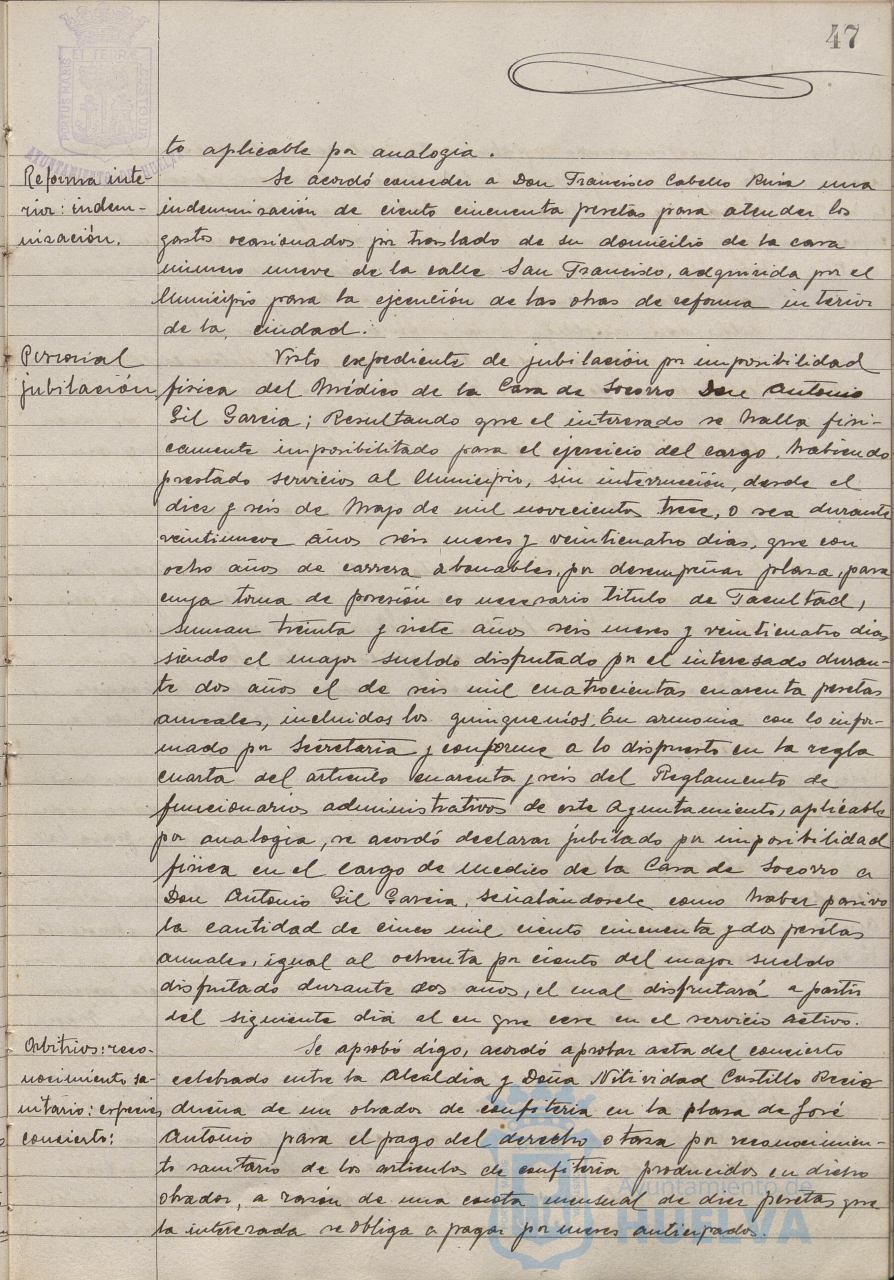 47
PORTUS MARIS ET TERRAE CUSTODIA
AYUNTAMIENTO DE HUELVA
to aplicable por analogia.
Reforma inte-
rior: indem-
nización.
Se acordó conceder a Don Francisco Cabello Ruiz una
indemnización de ciento cincuenta pesetas para atender los
gastos ocasionados por traslado de su domicilio de la casa
número nueve de la calle San Francisco, adquirida por el
Municipio para la ejecución de las obras de reforma interior
de la ciudad.
Personal
jubilación
Visto expediente de jubilación por imposibilidad
física del Médico de la Casa de Socorro Don Antonio
Gil Garcia; Resultando que el interesado se halla físi-
camente imposibilitado para el ejercicio del cargo, habiendo
prestado servicios al Municipio, sin interrucción, desde el
diez y seis de Mayo de mil novecientos trece, o sea durante
veintinueve años seis meses y veinticuatro dias, que con
ocho años de carrera abonables, por desempeñar plaza, para
cuya toma de posesión es necesario titulo de Facultad,
suman treinta y siete años seis meses y veinticuatro dias
siendo el mayor sueldo disfrutado por el interesado duran-
te dos años el de seis mil cuatrocientas cuarenta pesetas
anuales, incluidos los quinquenios. En armonia con lo infor-
mado por Secretaria y conforme a lo dispuesto en la regla
cuarta del artículo cuarenta y seis del Reglamento de
funcionarios administrativos de este Ayuntamiento, aplicable
por analogia, se acordó declarar jubilado por imposibilidad
física en el cargo de medico de la Casa de Socorro a
Don Antonio Gil Garcia, señalándosele como haber pasivo
la cantidad de cinco mil ciento cincuenta y dos pesetas
anuales, igual al ochenta por ciento del mayor sueldo
disfrutado durante dos años, el cual disfrutará a partir
del siguiente dia al en que cese en el servicio activo.
Arbitrios: reco-
nocimiento sa-
nitario: especies
concierto:
Se aprobó digo, acordó aprobar acta del concierto
celebrado entre la Alcaldia y Doña Nitividad Castillo Recio
dueña de un obrador de confiteria en la plaza de José
Antonio para el pago del derecho o tasa por reconocimien-
to sanitario de los articulos de confiteria producidos en dicho
obrador, a razón de una cuota mensual de diez pesetas que
la interesada se obliga a pagar por meses anticipados.
Ayuntamiento de
HUELVA